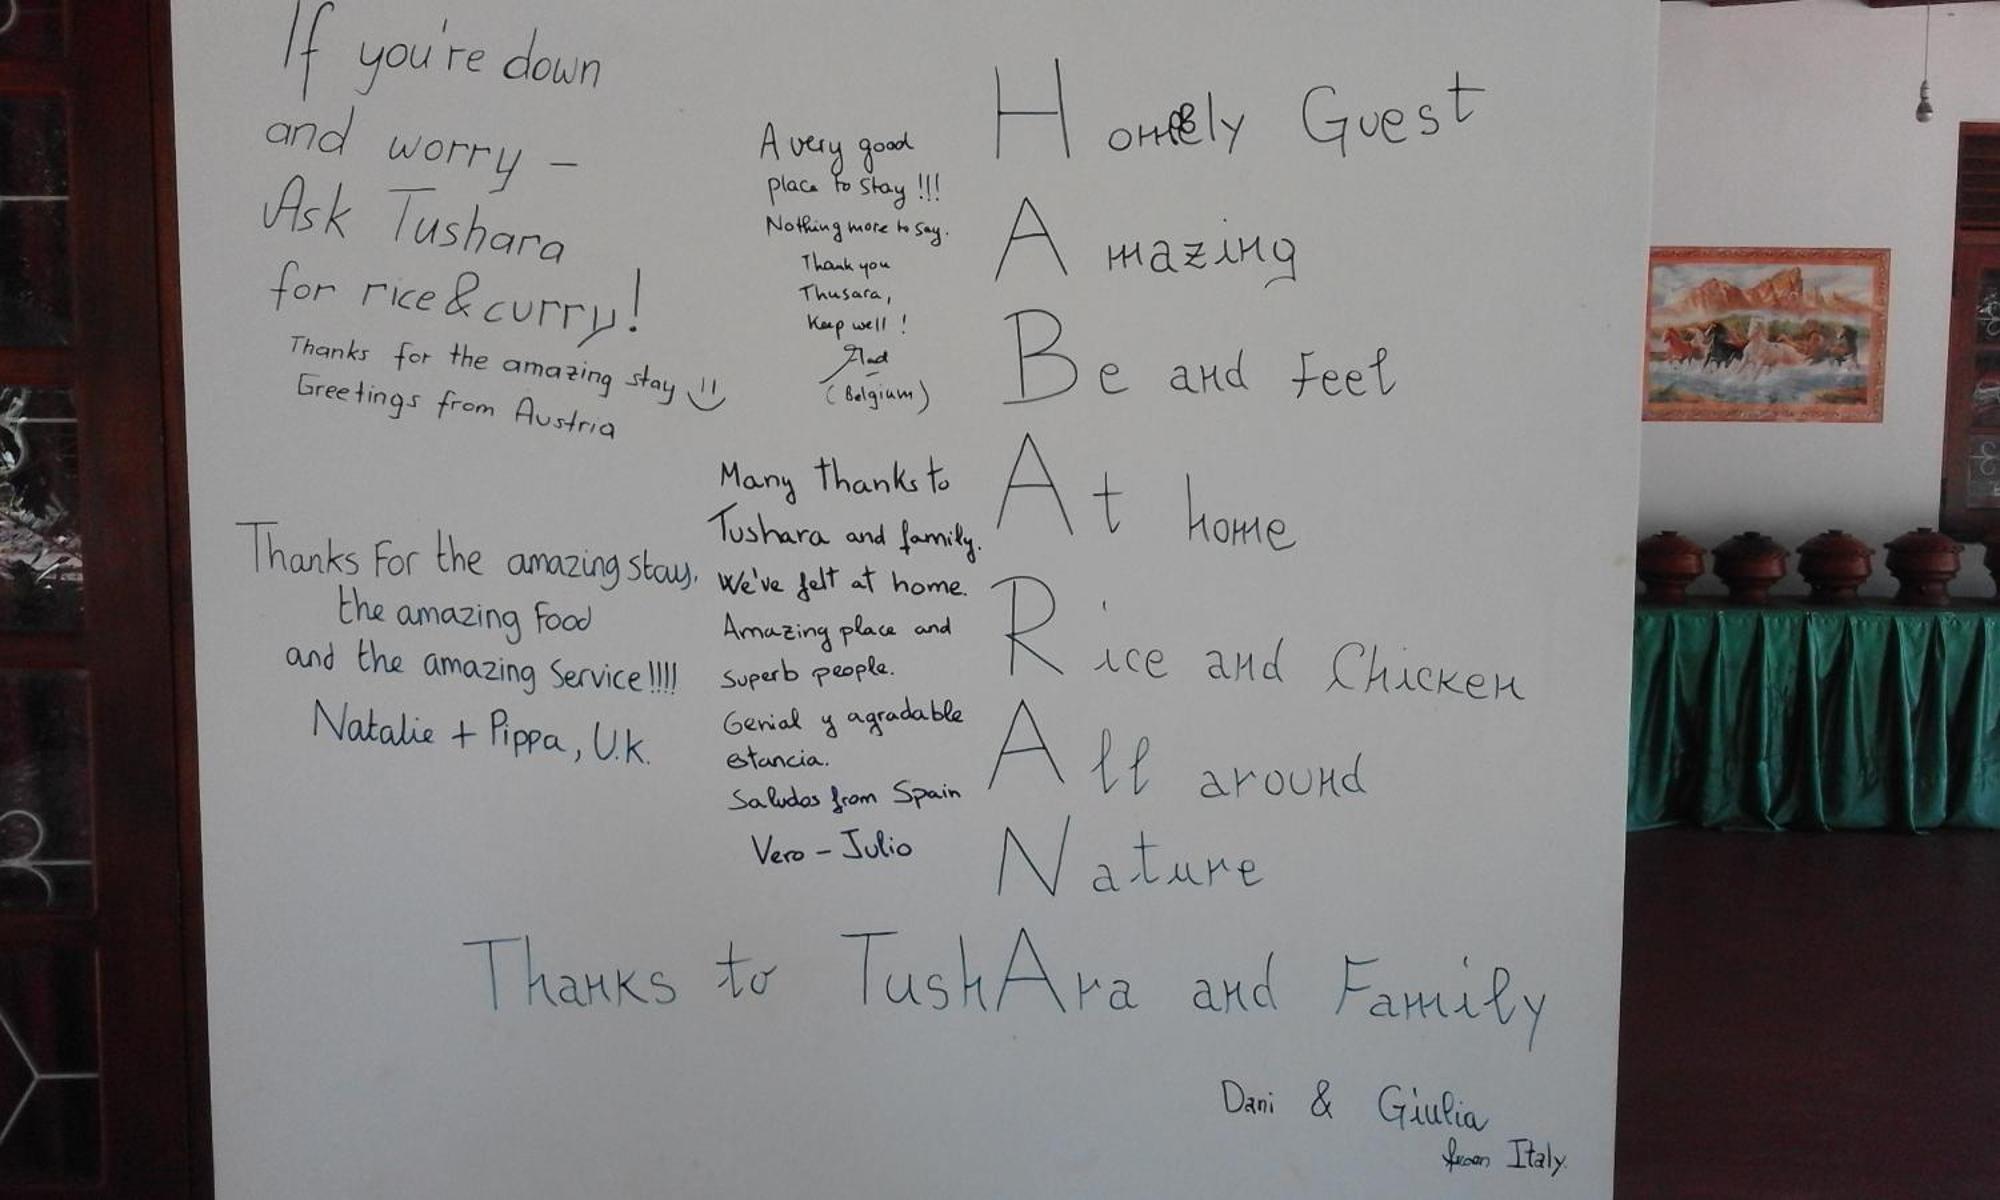 If you're down
and worry –
Ask Tushara
for rice & curry!
Thanks for the amazing stay
Greetings from Austria
Thanks For the amazing stay,
the amazing Food
and the amazing Service!!!!
Natalie + Pippa, U.K.
A very good
place to stay !!!
Nothing more to say.
Thank you
Thusara,
Keep well !
(Belgium)
Many thanks to
Tushara and family.
We've felt at home.
Amazing place and
superb people.
Genial y agradable
estancia.
Saludos from Spain
Vero – Julio
Homely Guest
Amazing
Be and Feel
At home
Rice and Chicken
All around
Nature
Thanks to TushAra and Family
Dani & Giulia
from Italy